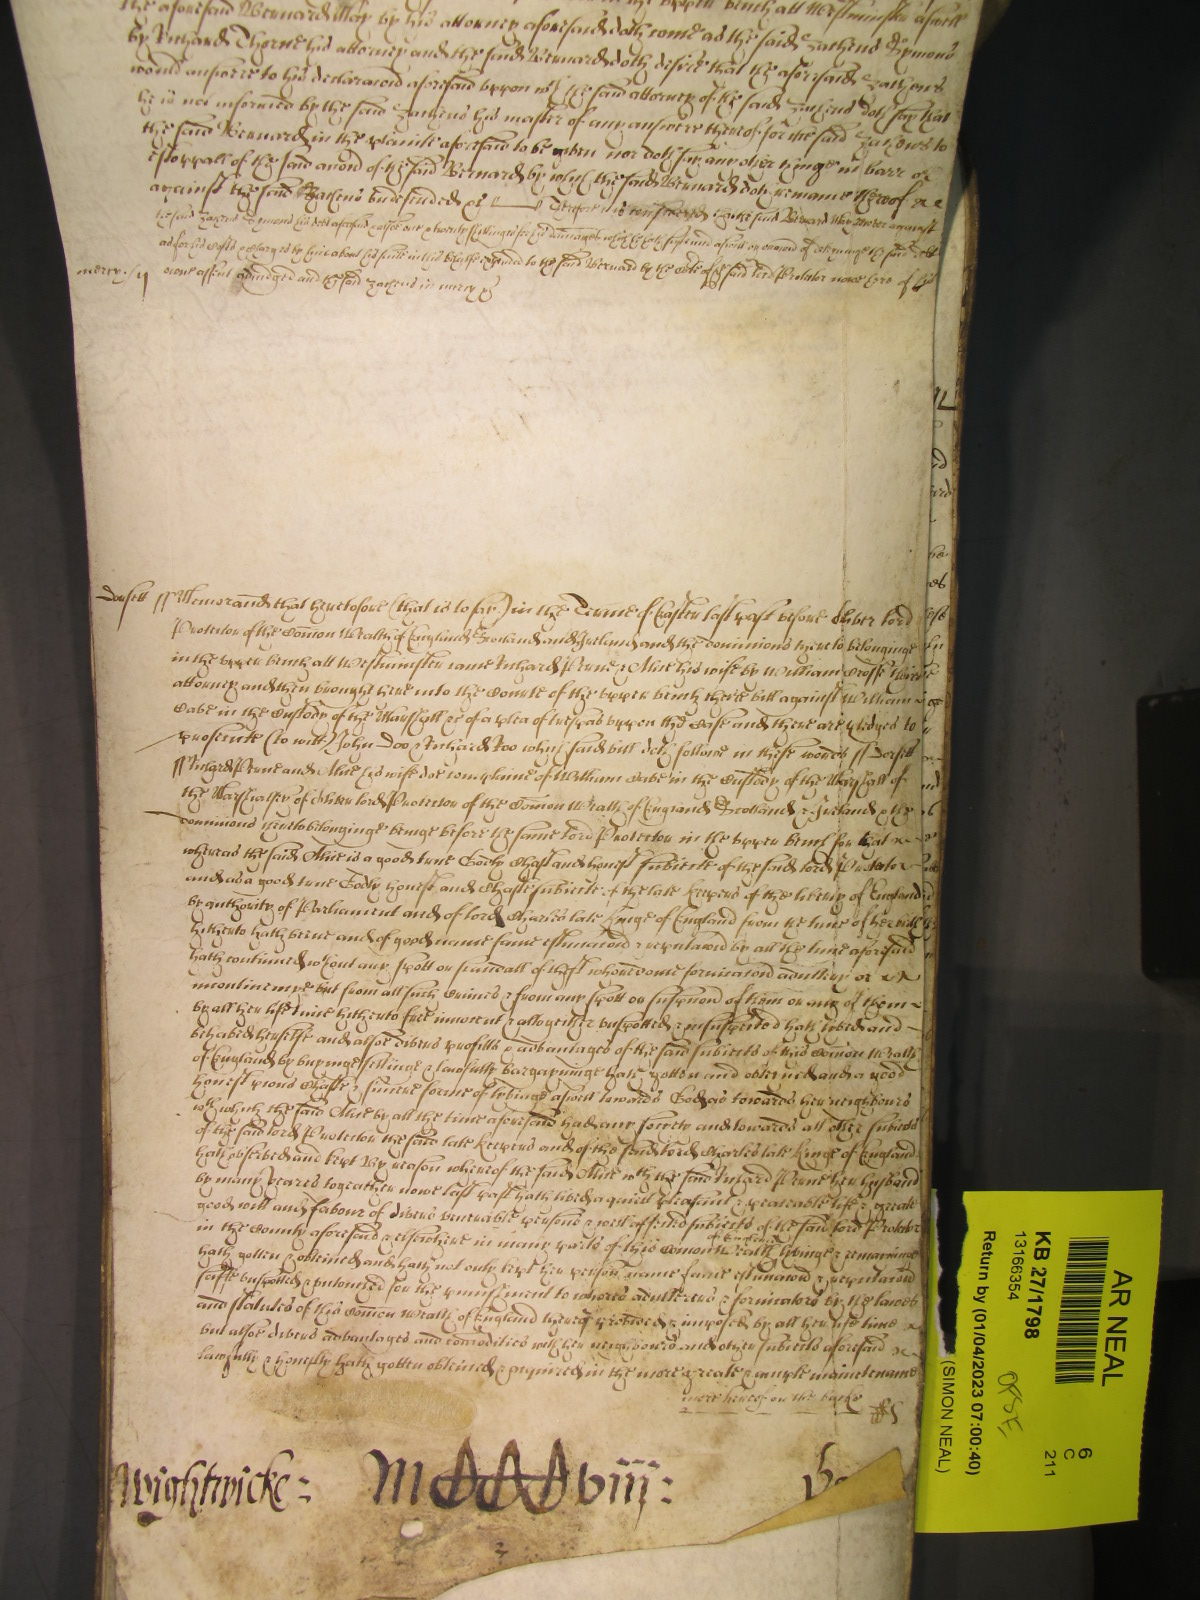 the aforesaid Bernard May by his attorney aforesaid doth come as the said Zacheus
by Richard Thorne his attorney and the said Bernard doth desire that the aforesaid Zacheus
would answere to his declaracon aforesaid uppon wch the said attorney of the said Zacheus doth say that
he is not informed by the said Zacheus his master of any answere thereof for the said Zacheus to
the said Bernard in the aforesaid to be given nor doth say any other thinge in barr or
of the said accon of the said Bernard by which the said Bernard doth remaine thereof
against the said Zacheus undefended &c Therefore it is considered that the said Bernard May recover against
the said Zacheus
as for his costs & charges by him about his suite in this behalfe to the said Bernard by the Court of the said lord Protector nowe here of his
mercy owne assent adiudged and the said Zacheus in mercy &c
Dorsett ss Memorand that heretofore (that is to say) in the Terme of Easter last past before Oliver lord
Protector of the Comon Wealth of England Scotland and Ireland and the dominions thereto belonginge
in the upper bench att Westminster came Richard Perne & Alice his wife by William Crosse theire
attorney and then brought here into the Courte of the upper bench theire bill against William
Cave in the Custody of the Marshall &c of a plea of trespas uppon the Case and there are pledges to
prosecute (to witt) John Doo & Richard Roo which said bill doth followe in these words ss Dorsett
ss Richard Perne and Alice his wife doe complaine of William Cave in the Custody of the Marshall of
the Marshalsey of Oliver lord Protector of the Comon Wealth of England Scotland & Ireland & the
dominions thereto belonginge beinge before the same lord Protector in the upper bench for that
whereas the said Alice is a good true Godly Chast and honest subiecte of the said lord Protector
and as a good true Godly honest and Chaste subiecte of the late keepers of the liberty of England
by authority of Parliament and of lord Charles late Kinge of England from the time of her birth
hitherto hath beene and of good name fame estimacon & reputacon by all the time aforesaid
hath continued wthout any spott or scandall of theft whoredome fornicacon adultery or
incontinencye but from all such Crimes & from any spott or suspicion of them or any of them
by all her life time hitherto free innocent & altogeither unspotted & unsuspected hath lyved and
behaved herselfe and alsoe divers profitts & advantages of the said subiects of this Comon Wealth
of England by buyinge sellinge & lawfully bargayninge hath gotten and obteined and a good
honest pious Chaste & sincere forme of lyvinge aswell towards God as towards her neighbours
wth which the said Alice by all the time aforesaid had any society and towards all other subiects
of the said lord Protector the said late keepers and of the said lord Charles late Kinge of England
hath observed and kept By reason whereof the said Alice wth the said Richard Perne her husband
by many yeares togeather nowe last past hath lived a quiet pleasant & peaceable life & greate
good will and favour of divers venerable persons & well affected subiects of the said lord Protector
in the County aforesaid & elsewhere in many parts of this Comon Wealth of England lyvinge & remaininge
hath gotten & obteined and hath not only kept her person name fame estimacon & reputacon
safe unspotted & for the punishment to whores adulterers & fornicators by the lawes
and statutes of this Comon Wealth of England thereof provided & imposed by all her life time
but alsoe divers advantages and comodities with her neighbours and other subiects aforesaid
lawfully & honestly hath gotten obteined & acquired in the more greate & ample maintenance
more hereof on the backe
Wightwicke: M viij:
AR NEAL
6
C
211
KB 27/1798
13166354
Return by (01/04/2023 07:00:40)
(SIMON NEAL)